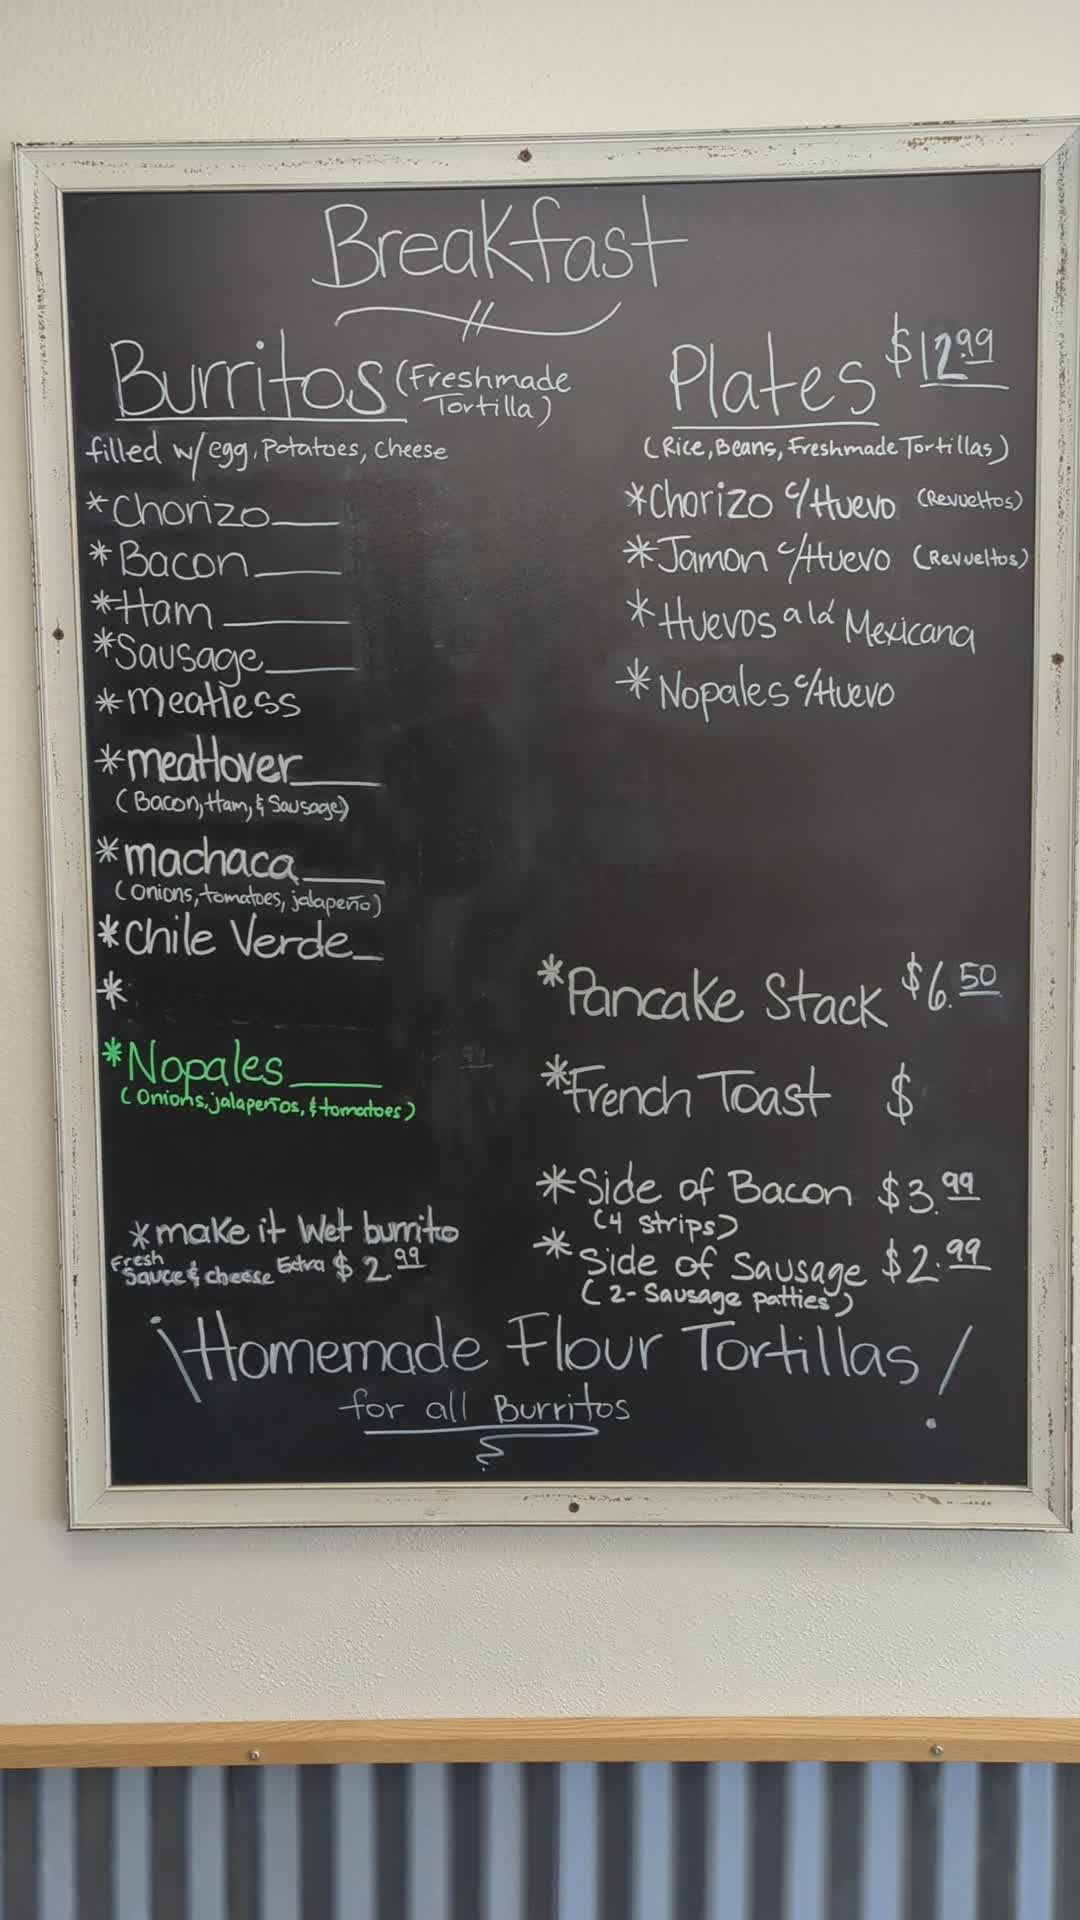 Breakfast
Burritos (Freshmade
Tortilla)
filled w/egg, Potatoes, Cheese
*Chorizo___
*Bacon___
*Ham___
*Sausage___
*meatless
*meatlover___
(Bacon, Ham, & Sausage)
*machaca___
(Onions, tomatoes, jalapeño)
*Chile Verde_
*
*Nopales___
(Onions, jalapeños, & tomatoes)
*make it Wet burrito
Fresh
Sauce & cheese Extra $2.99
Plates $12.99
(Rice, Beans, Freshmade Tortillas)
*Chorizo c/Huevo (Revueltos)
*Jamon c/Huevo (Revueltos)
*Huevos a lá Mexicana
*Nopales c/Huevo
*Pancake Stack $6.50
*French Toast $
*Side of Bacon $3.99
(4 strips)
*Side of Sausage $2.99
(2-Sausage patties)
¡Homemade Flour Tortillas!
for all Burritos